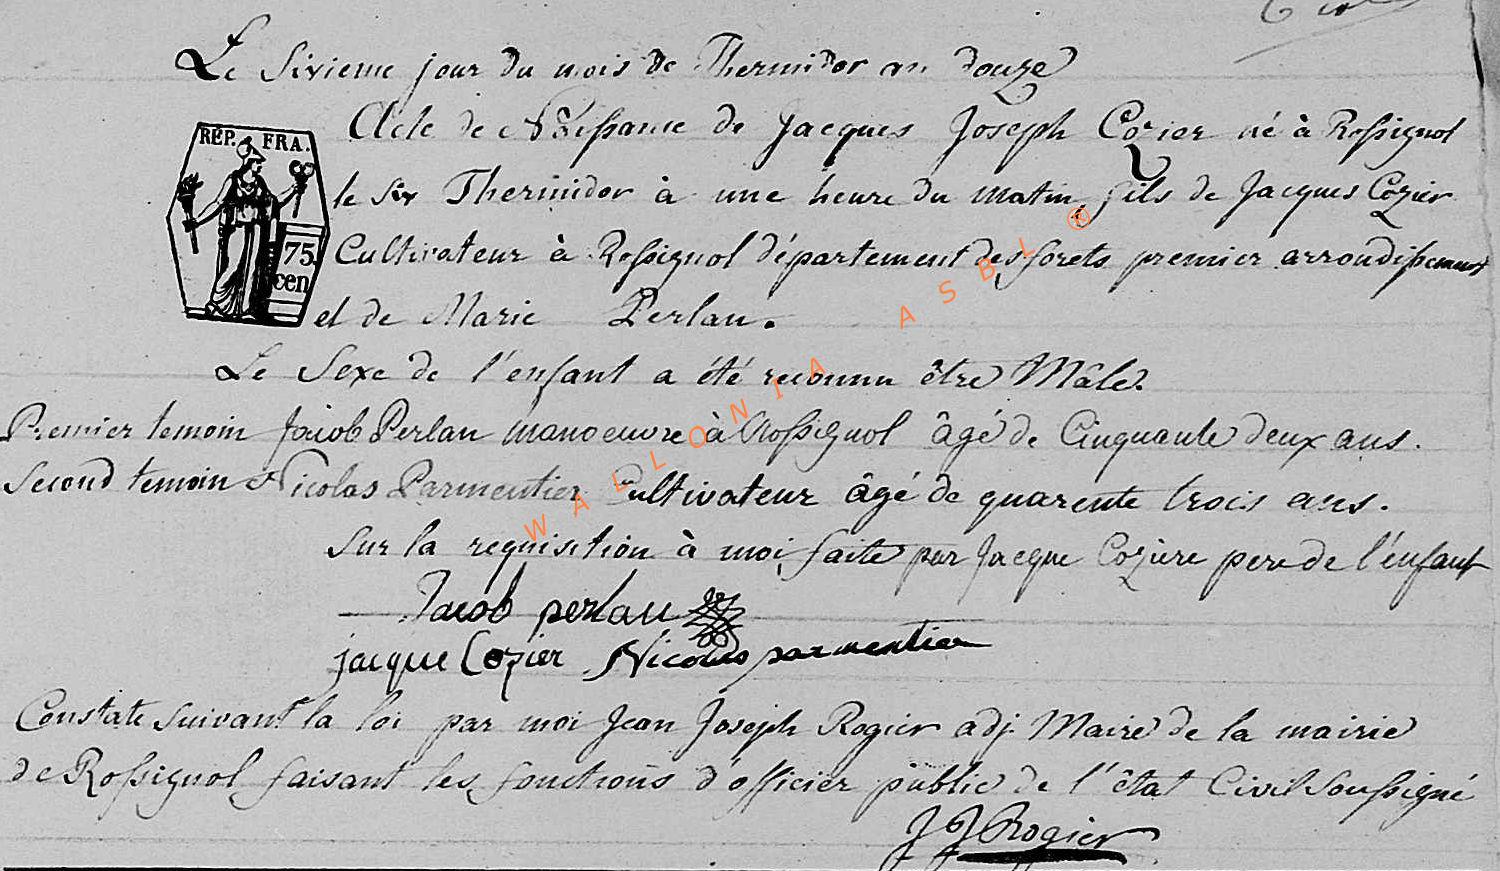 Le sixieme jour du mois de Thermidor an douze
Acte de Naissance de Jacques Joseph Cozier né à Rossignol
REP. FRA.
le six Thermidor à une heure du matin, fils de Jacques Cozier
75
cen
Cultivateur à Rossignol département des forets premier arrondissement
et de Marie Perlau.
Le Sexe de l'enfant a été reconnu être Mâle.
Premier temoin Jacob Perlau manoeuvre à Rossignol âgé de Cinquante deux ans.
second temoin Nicolas Parmentier Cultivateur âgé de quarente trois ans.
Sur la requisition à moi faite par Jacque Cozière pere de l'enfant
Jacob perlau
jacque Cozier Nicolas parmentier
Constate suivant la loi par moi Jean Joseph Rogier adj. Maire de la mairie
de Rossignol faisant les fonctions d'officier public de l'état Civil soussigné
J J Rogier
WALLONIA ASBL ®